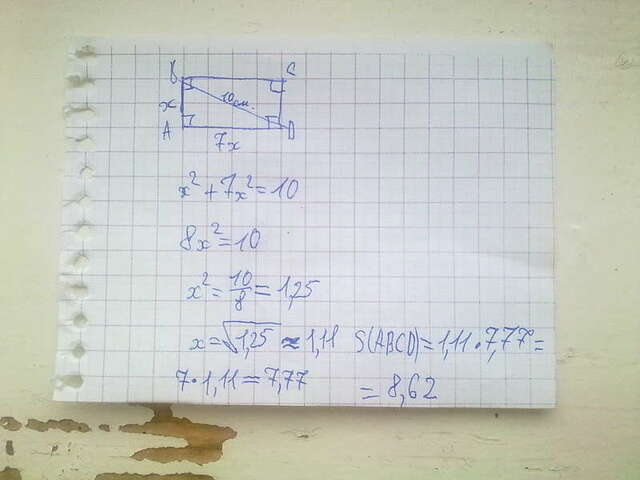 B C
x 10см.
A D
7x
x² + 7x² = 10
8x² = 10
x² = 10/8 = 1,25
x = √1,25 ≈ 1,11 S(ABCD) = 1,11 · 7,77 =
7 · 1,11 = 7,77 = 8,62